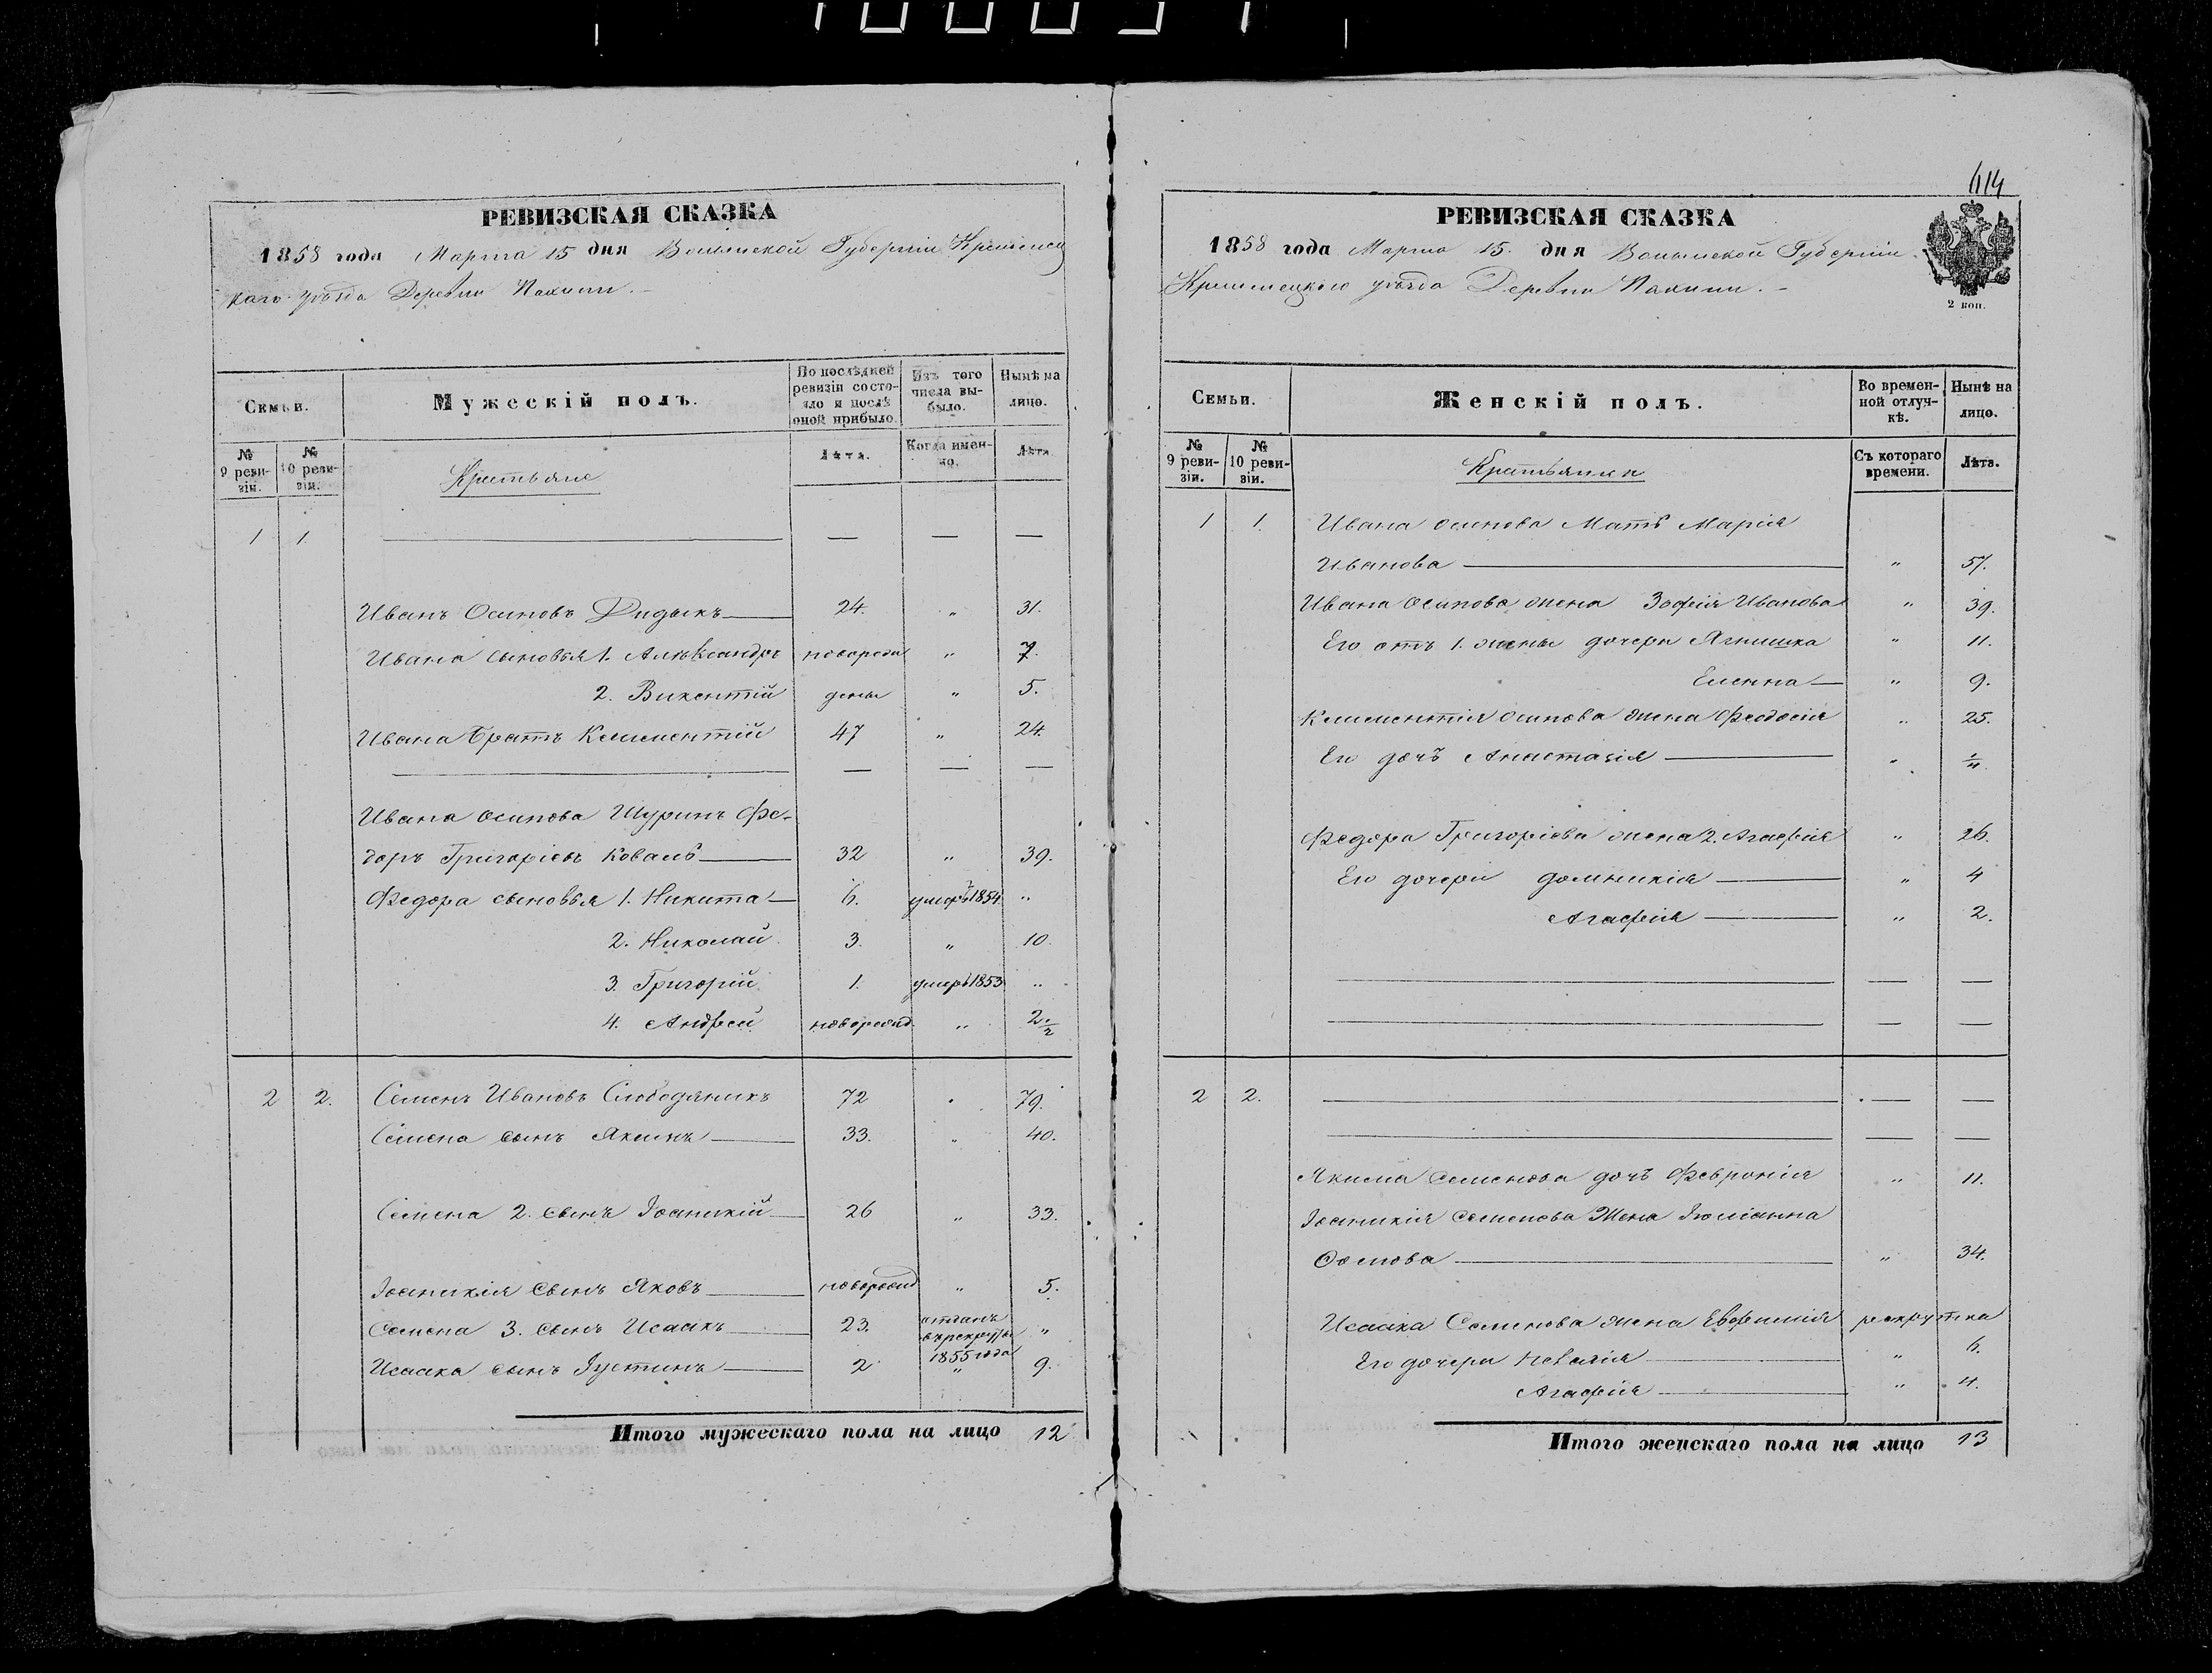 100031
РЕВИЗСКАЯ СКАЗКА
1858 года Марта 15 дня Волынской Губерніи Кременец
каго уѣзда Деревни
Семьи.
Мужескій полъ.
По послѣдней ревизіи состояло и послѣ оной прибыло.
Изъ того числа выбыло.
Нынѣ на лицо.
№ 9 ревизіи.
№ 10 ревизіи.
Крестьяне
Лѣта.
Когда именно.
Лѣта.
1 1. — — —
Иванъ Осиповъ Дидыкъ 24. „ 31.
Ивана сыновья 1. Александръ новорож „ 7.
2. Викентій дены „ 5.
Ивана братъ Климентій 47 „ 24.
— — —
Ивана Осипова Шуринъ Фе-
доръ Григоріевъ Коваль 32 „ 39.
Федора сыновья 1. Никита 6. умеръ 1854 „
2. Николай 3. „ 10.
3. Григорій 1. умеръ 1853 „
4. Андрей новорожд. „ 2
2 2. Семенъ Ивановъ Слободяникъ 72 „ 79.
Семена сынъ Якимъ 33. „ 40.
Семена 2. сынъ Іоаникій 26 „ 33.
Іоаникія сынъ Яковъ новорожд „ 5.
Семена 3. сынъ Исаакъ 23. отданъ в рекруты 1855 года „
Исаака сынъ Іустинъ 2 „ 9.
Итого мужескаго пола на лицо 12
414
РЕВИЗСКАЯ СКАЗКА
1858 года Марта 15. дня Волынской Губерніи
Кременецкого уѣзда Деревни
2 коп.
Семьи.
Женскій полъ.
Во временной отлучкѣ.
Нынѣ на лицо.
№ 9 ревизіи.
№ 10 ревизіи.
Крестьянки
Съ котораго времени.
Лѣта.
1 1. Ивана Осипова Мать Марія
Иванова „ 57.
Ивана Осипова жена Зофія Иванова „ 39.
Его отъ 1. жены дочери Ягнишка „ 11.
Еленна „ 9.
Климентія Осипова жена Феодосія „ 25.
Его дочь Анастасія „
Федора Григоріева жена 2. Агафія „ 26.
Его дочери Домникія „ 4
Агафія „ 2.
— —
— —
2 2. — —
— —
Якима Семенова дочь Февронія „ 11.
Іоаникія Семенова Жена Юліанна
„ 34.
Исаака Семенова жена Евфимія рекрутка
Его дочери „ 6.
Агафія „ 4.
Итого женскаго пола на лицо 13